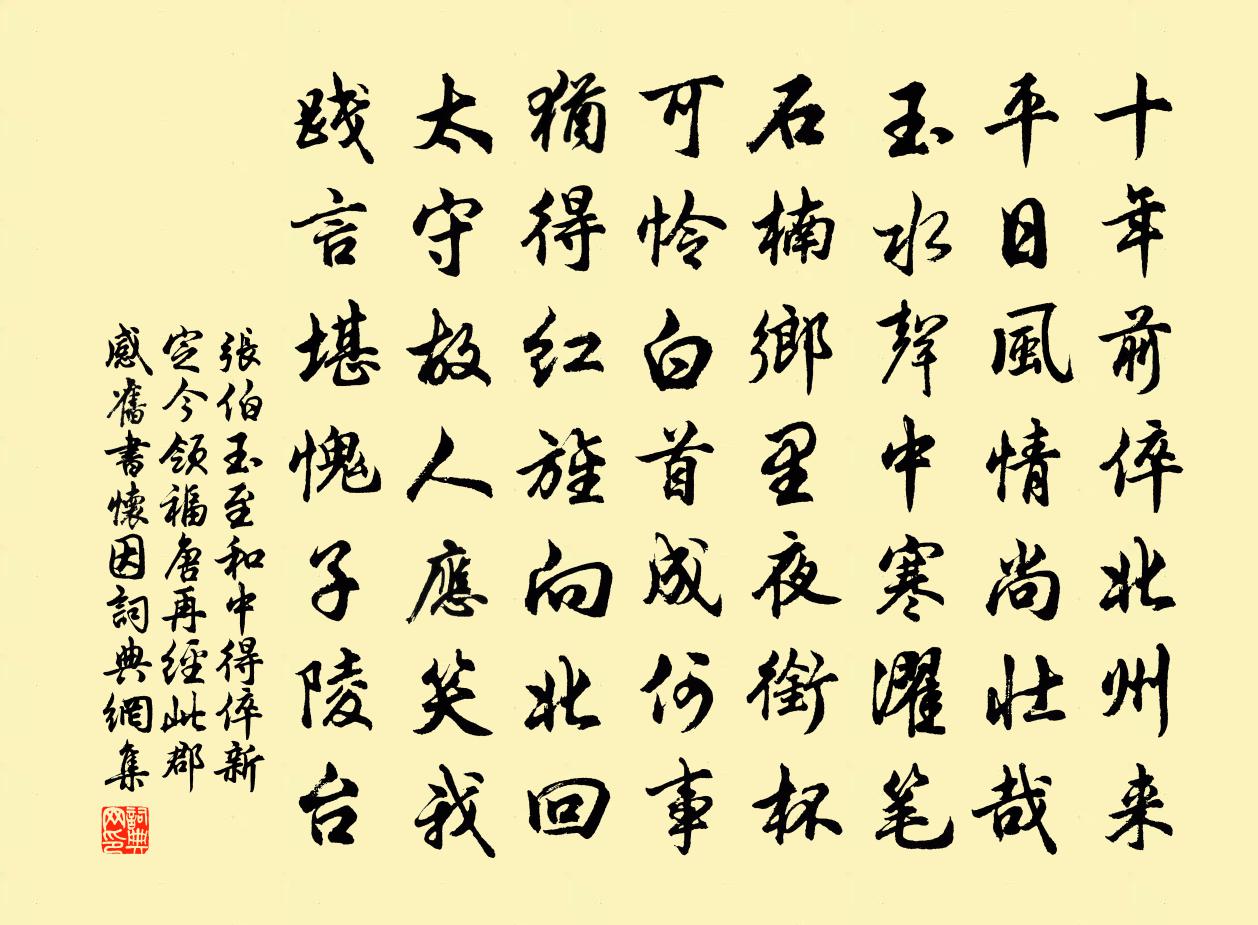 十年前倅北州来
平日風情尚壮哉
玉水聲中寒濯笔
石楠鄉里夜銜杯
可怜白首成何事
猶得红旌向北回
太守故人應笑我
践言堪愧子陵台
張伯玉至和中得倅新
定今領福唐再經此郡
感舊書懷因詞典網集
詞典网印